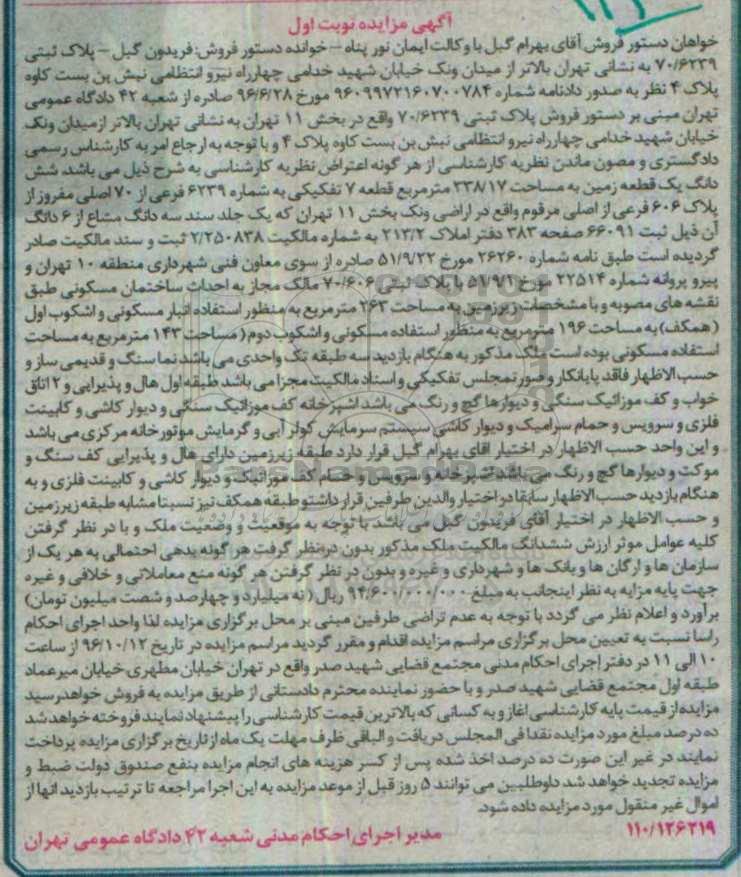 آگهی مزایده نوبت اول
خواهان دستور فروش آقای بهرام گبل با وکالت ایمان نور پناه – خوانده دستور فروش: فریدون گبل – پلاک ثبتی
۷۰/۶۲۳۹ به نشانی تهران بالاتر از میدان ونک خیابان شهید خدامی چهارراه نیرو انتظامی نبش بن بست کاوه
پلاک ۴ نظر به صدور دادنامه شماره ۹۶۰۹۹۷۲۱۶۰۷۰۰۷۸۴ مورخ ۹۶/۶/۲۸ صادره از شعبه ۴۲ دادگاه عمومی
تهران مبنی بر دستور فروش پلاک ثبتی ۷۰/۶۲۳۹ واقع در بخش ۱۱ تهران به نشانی تهران بالاتر ازمیدان ونک
خیابان شهید خدامی چهارراه نیرو انتظامی نبش بن بست کاوه پلاک ۴ و با توجه به ارجاع امر به کارشناس رسمی
دادگستری و مصون ماندن نظریه کارشناسی از هر گونه اعتراض نظریه کارشناسی به شرح ذیل می باشد شش
دانگ یک قطعه زمین به مساحت ۳۳۸/۱۷ مترمربع قطعه ۷ تفکیکی به شماره ۶۲۳۹ فرعی از ۷۰ اصلی مفروز از
پلاک ۶۰۶ فرعی از اصلی مرقوم واقع در اراضی ونک بخش ۱۱ تهران که یک جلد سند سه دانگ مشاع از ۶ دانگ
آن ذیل ثبت ۶۶۰۹۱ صفحه ۳۸۳ دفتر املاک ۲۱۳/۲ به شماره مالکیت ۲/۲۵۰۸۳۸ ثبت و سند مالکیت صادر
گردیده است طبق نامه شماره ۲۶۲۶۰ مورخ ۵۱/۹/۲۲ صادره از سوی معاون فنی شهرداری منطقه ۱۰ تهران و
پیرو پروانه شماره ۲۲۵۱۴ مورخ ۵۱/۹/۱ با پلاک ثبتی ۷۰/۶۰۶ مالک مجاز به احداث ساختمان مسکونی طبق
نقشه های مصوبه و با مشخصات زیرزمین به مساحت ۲۶۳ مترمربع به منظور استفاده انبار مسکونی و اشکوب اول
(همکف) به مساحت ۱۹۶ مترمربع به منظور استفاده مسکونی و اشکوب دوم (مساحت ۱۴۳ مترمربع به مساحت
استفاده مسکونی بوده است ملک مذکور به هنگام بازدید سه طبقه تک واحدی می باشد نما سنگ و قدیمی ساز و
حسب الاظهار فاقد پایانکار و صورتمجلس تفکیکی و اسناد مالکیت مجزا می باشد طبقه اول هال و پذیرایی و ۲ اتاق
خواب و کف موزائیک سنگی و دیوارها گچ و رنگ می باشد اشپزخانه کف موزائیک سنگی و دیوار کاشی و کابینت
فلزی و سرویس و حمام سرامیک و دیوار کاشی سیستم سرمایش کولر آبی و گرمایش موتورخانه مرکزی می باشد
و این واحد حسب الاظهار در اختیار اقای بهرام گبل قرار دارد طبقه زیرزمین دارای هال و پذیرایی کف سنگ و
موکت و دیوارها گچ و رنگ می باشد اشپزخانه و سرویس و حمام کف موزائیک و دیوار کاشی و کابینت فلزی و به
هنگام بازدید حسب الاظهار سابقا در اختیار والدین طرفین قرار داشتو طبقه همکف نیز نسبتا مشابه طبقه زیرزمین
و حسب الاظهار در اختیار آقای فریدون گبل می باشد با توجه به موقعیت و وضعیت ملک و با در نظر گرفتن
کلیه عوامل موثر ارزش ششدانگ مالکیت ملک مذکور بدون درنظر گرفت هر گونه بدهی احتمالی به هر یک از
سازمان ها و ارگان ها و بانک ها و شهرداری و غیره و بدون در نظر گرفتن هر گونه منع معاملاتی و خلافی و غیره
جهت پایه مزایه به نظر اینجانب به مبلغ ۹۴/۶۰۰/۰۰۰/۰۰۰ ریال (نه میلیارد و چهارصد و شصت میلیون تومان)
برآورد و اعلام نظر می گردد با توجه به عدم تراضی طرفین مبنی بر محل برگزاری مزایده لذا واحد اجرای احکام
راسا نسبت به تعیین محل برگزاری مراسم مزایده اقدام و مقرر گردید مراسم مزایده در تاریخ ۹۶/۱۰/۱۲ از ساعت
۱۰ الی ۱۱ در دفتر اجرای احکام مدنی مجتمع قضایی شهید صدر واقع در تهران خیابان مطهری خیابان میرعماد
طبقه اول مجتمع قضایی شهید صدر و با حضور نماینده محترم دادستانی از طریق مزایده به فروش خواهدرسید
مزایده از قیمت پایه کارشناسی اغاز و به کسانی که بالاترین قیمت کارشناسی را پیشنهاد نمایند فروخته خواهد شد
ده درصد مبلغ مورد مزایده نقدا فی المجلس دریافت و الباقی ظرف مهلت یک ماه از تاریخ برگزاری مزایده پرداخت
نمایند در غیر این صورت ده درصد اخذ شده پس از کسر هزینه های انجام مزایده بنفع صندوق دولت ضبط و
مزایده تجدید خواهد شد داوطلبین می توانند ۵ روز قبل از موعد مزایده به این اجرا مراجعه تا ترتیب بازدید انها از
اموال غیر منقول مورد مزایده داده شود.
۱۱۰/۱۲۶۲۱۹
مدیر اجرای احکام مدنی شعبه ۴۲ دادگاه عمومی تهران
ParsNamadData